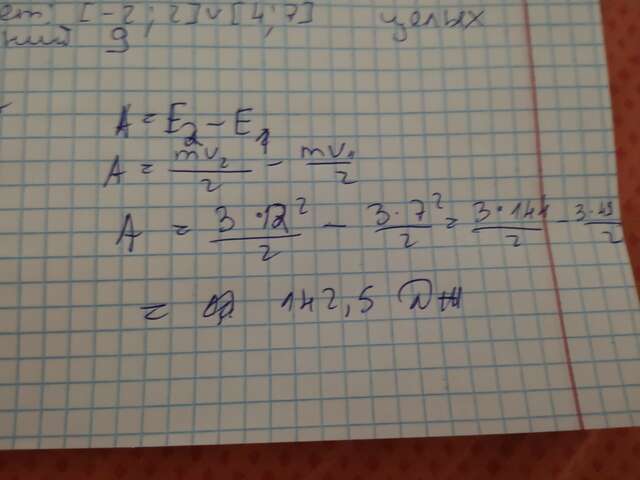 ет: [-2; 2]∪[4; 7] целых
ний 9
A = E₂ - E₁
A = mv₂/2 - mv₁/2
A = 3·12²/2 - 3·7²/2 = 3·144/2 - 3·49/2
= 142,5 Дж